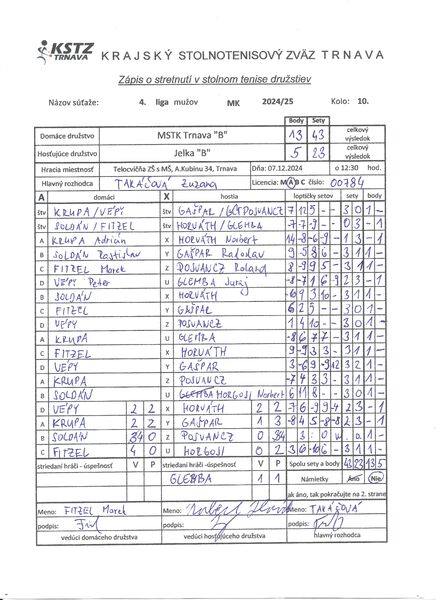 KSTZ
TRNAVA
KRAJSKÝ STOLNOTENISOVÝ ZVÄZ TRNAVA
Zápis o stretnutí v stolnom tenise družstiev
Názov súťaže: 4. liga mužov MK 2024/25 Kolo: 10.
Body Sety
Domáce družstvo MSTK Trnava "B" 13 43 celkový výsledok
Hosťujúce družstvo Jelka "B" 5 23 celkový výsledok
Hracia miestnosť Telocvičňa ZŠ s MŠ, A.Kubinu 34, Trnava Dňa: 07.12.2024 o 12:30 hod.
Hlavný rozhodca TAKÁČOVÁ Zuzana Licencia: M A B C číslo: 00784
A domáci X hostia loptičky setov sety body
štv KRUPA/VEPY štv GAŠPAL/POSVANCZ 7 12 5 - - 3 0 1 -
štv SOLDÁN/FITZEL štv HORVÁTH/GLEMBA -7 -7 -9 - - 0 3 - 1
A KRUPA Adrian X HORVÁTH Norbert 14 -8 -6 -9 - 1 3 - 1
B SOLDÁN Rastislav Y GAŠPAR Radoslav 3 1 1 -
C FITZEL Marek Z POSVANCZ Roland 3 1 1 -
D VÉPY Peter U GLEMBA Juraj -8 -7 1 6 -9 2 3 - 1
B SOLDÁN X HORVÁTH -6 9 3 10 - 3 1 1 -
C FITZEL Y GAŠPAR 6 2 5 - - 3 0 1 -
D VÉPY Z POSVANCZ 1 4 10 - - 3 0 1 -
A KRUPA U GLEMBA -8 6 7 7 - 3 1 1 -
C FITZEL X HORVÁTH 9 -9 3 3 - 3 1 1 -
D VÉPY Y GAŠPAR 3 -6 9 -9 12 3 2 1 -
A KRUPA Z POSVANCZ -7 4 3 3 - 3 1 1 -
B SOLDÁN U HORGOSI Norbert 6 11 8 - - 3 0 1 -
D VÉPY 2 2 X HORVÁTH 2 2 -7 6 -9 9 -4 2 3 - 1
A KRUPA 2 2 Y GAŠPAR 1 3 -8 4 5 -8 -8 2 3 - 1
B SOLDÁN 4 0 Z POSVANCZ 0 4 3 : 0 w. o. 1 -
C FITZEL 4 0 U HORGOSI 0 2 3 1 1 -
striedaní hráči - úspešnosť V P striedaní hráči -úspešnosť V P Spolu sety a body 43 23 13 5
GLEMBA 1 1 Námietky Áno Nie
ak áno, tak pokračujte na 2. strane
Meno: FITZEL Marek Meno: Meno: TAKÁČOVÁ
podpis: podpis: podpis:
vedúci domáceho družstva vedúci hosťujúceho družstva hlavný rozhodca